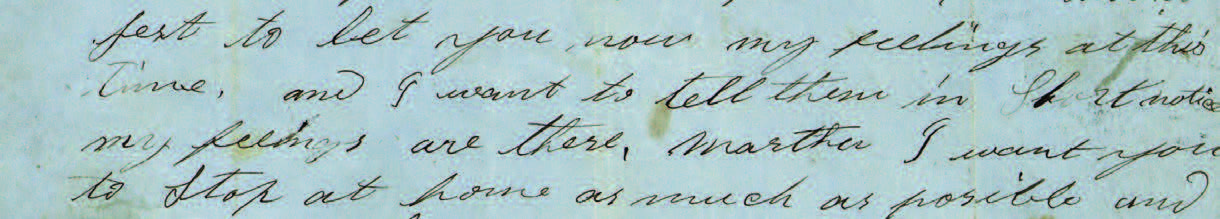 jest to let you now my feelings at this
Time, and I want to tell them in Short notice
my feelings are these, Marther I want you
to Stop at home as much as posible and